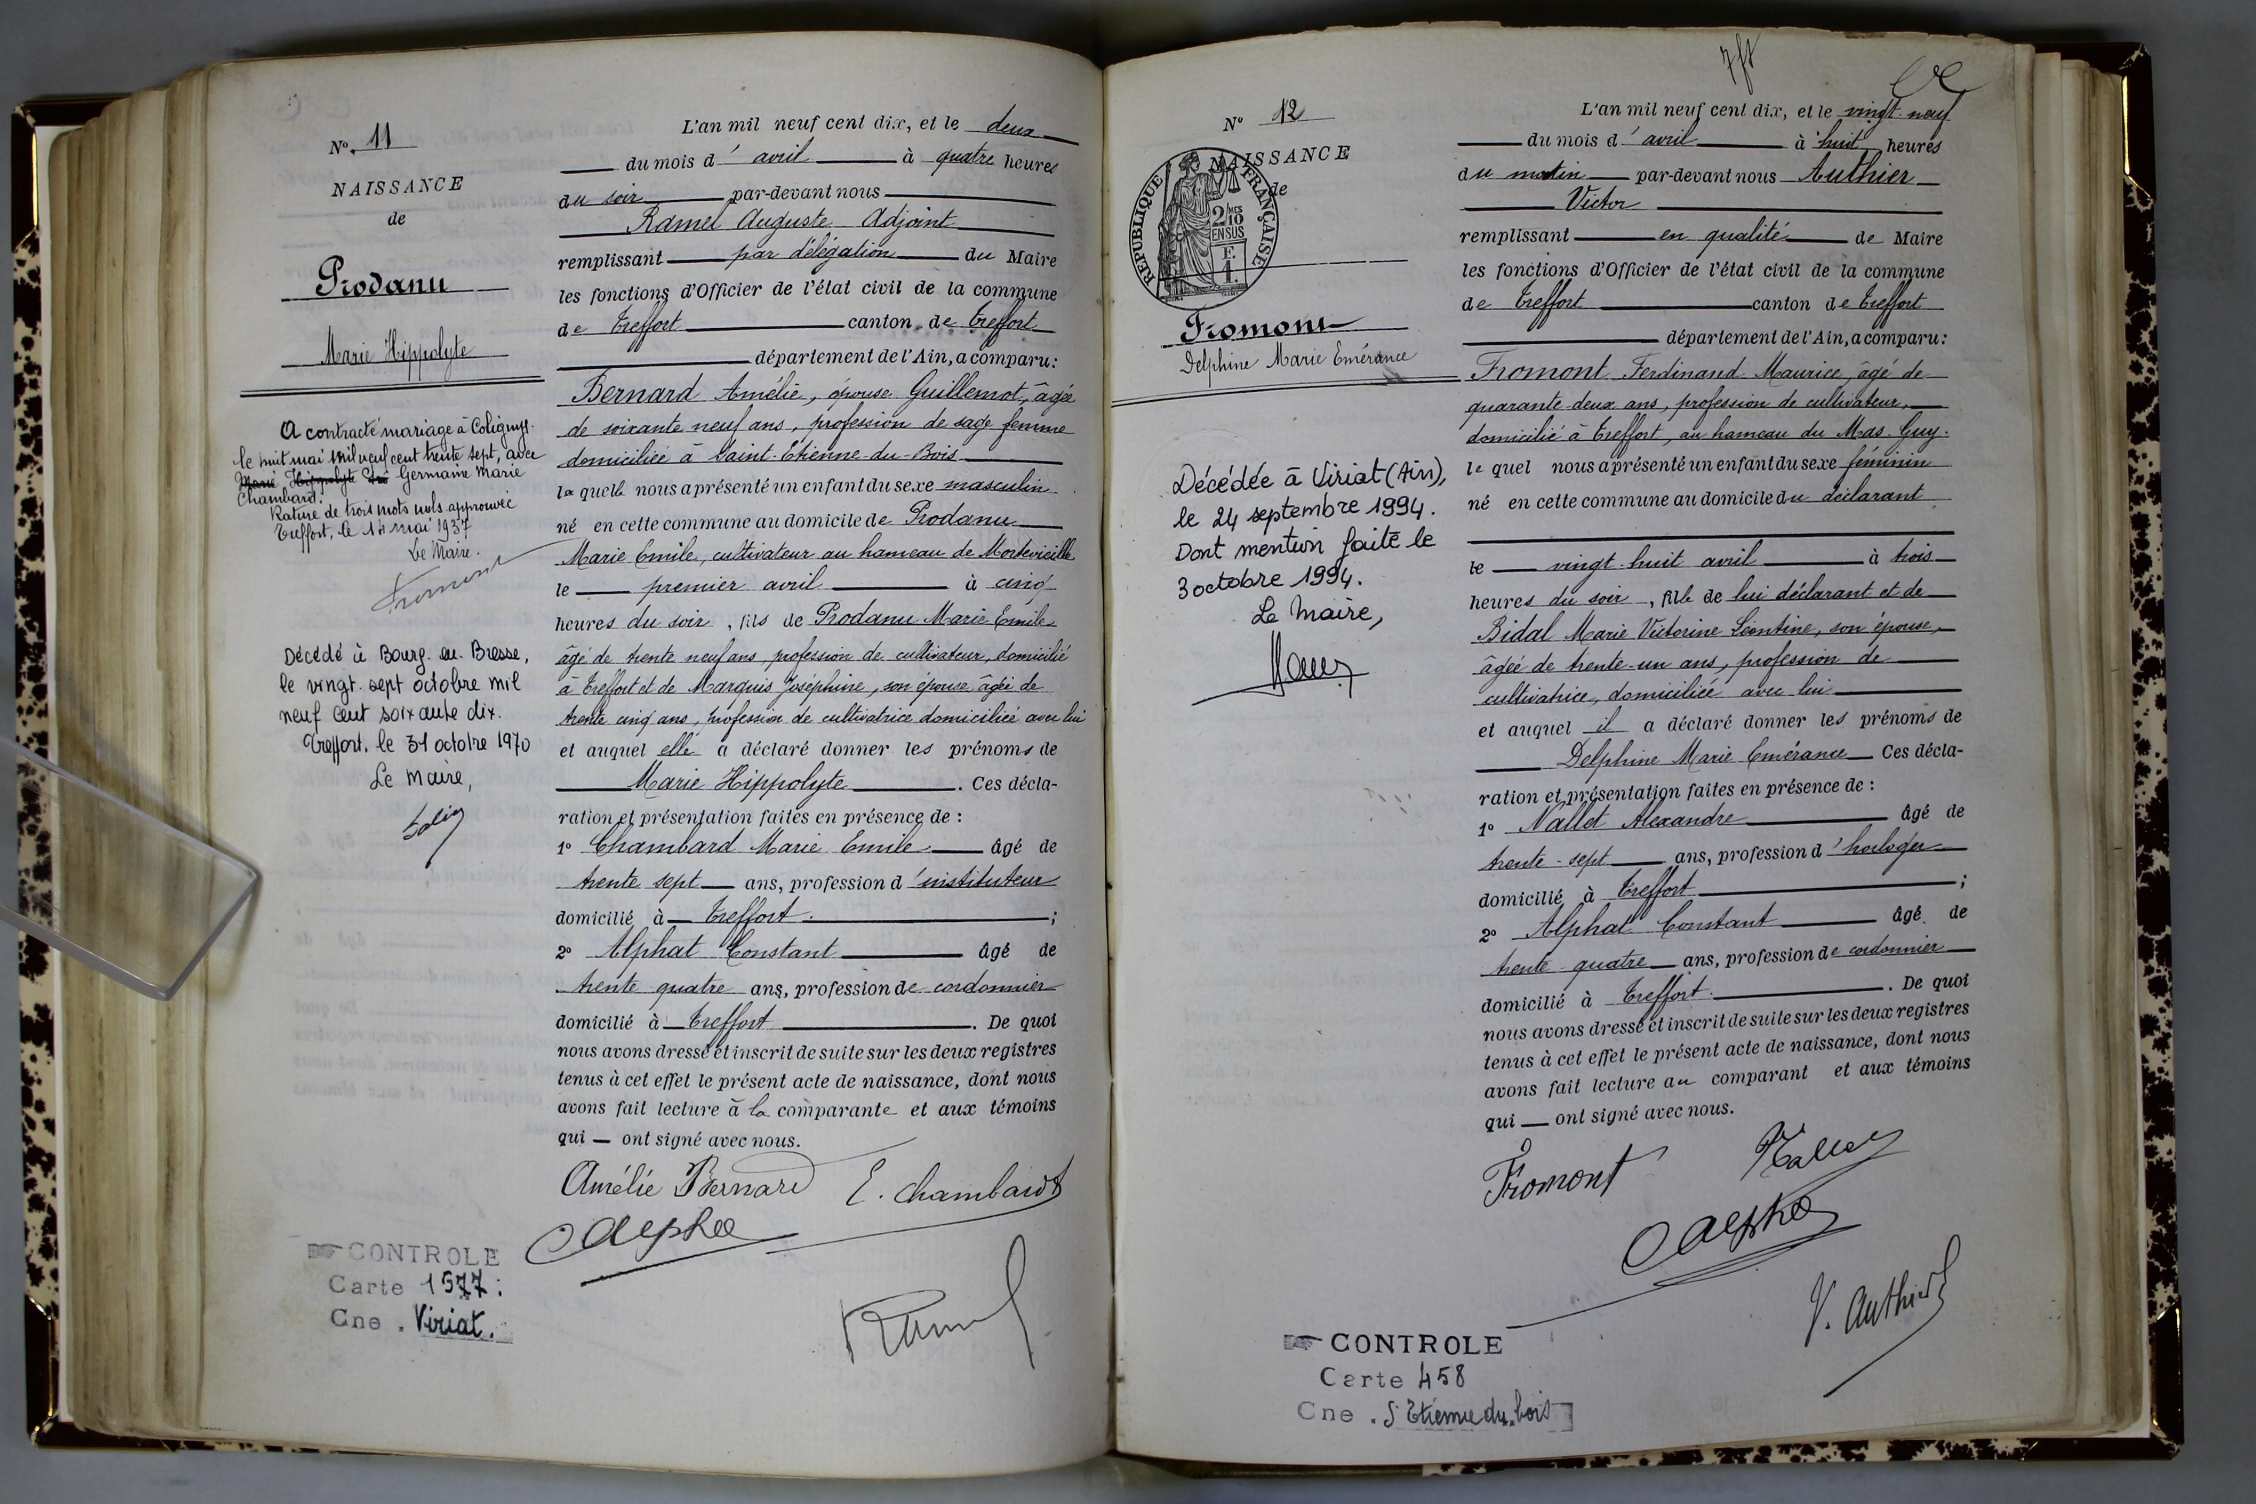 N° 11
NAISSANCE
de
Prodanu
Marie Hippolyte
A contracté mariage à Coligny
le huit mai mil neuf cent trente sept, avec
Marie Hippolyte Germaine Marie
Chambard.
Rature de trois mots nuls approuvée
Treffort, le 14 mai 1937
Le Maire.
Fromont
Décédé à Bourg-en-Bresse,
le vingt-sept octobre mil
neuf cent soixante dix.
Treffort, le 31 octobre 1970
Le Maire,
CONTROLE
Carte 1977
Cne. Viriat.
L'an mil neuf cent dix, et le deux
du mois d'avril à quatre heures
du soir par-devant nous
Ramel Auguste Adjoint
remplissant par délégation du Maire
les fonctions d'Officier de l'état civil de la commune
de Treffort canton de Treffort
département de l'Ain, a comparu:
Bernard Amélie, épouse Guillemot, âgée
de soixante neuf ans, profession de sage femme
domiciliée à Saint-Étienne-du-Bois
la quelle nous a présenté un enfant du sexe masculin
né en cette commune au domicile de Prodanu
Marie Emile, cultivateur au hameau de Montevieille
le premier avril à cinq
heures du soir, fils de Prodanu Marie Emile
âgé de trente neuf ans, profession de cultivateur, domicilié
à Treffort et de Marquis Joséphine, son épouse âgée de
trente cinq ans, profession de cultivatrice domiciliée avec lui
et auquel elle a déclaré donner les prénoms de
Marie Hippolyte. Ces décla-
ration et présentation faites en présence de :
1° Chambard Marie Emile âgé de
trente sept ans, profession d'instituteur
domicilié à Treffort ;
2° Alphat Constant âgé de
trente quatre ans, profession de cordonnier
domicilié à Treffort. De quoi
nous avons dressé et inscrit de suite sur les deux registres
tenus à cet effet le présent acte de naissance, dont nous
avons fait lecture à la comparante et aux témoins
qui ont signé avec nous.
Amélie Bernard E. Chambard
C Alphat
Ramel
7 ft
N° 12
NAISSANCE
de
REPUBLIQUE FRANÇAISE
2/10 EN SUS
F. 1
Fromont
Delphine Marie Emérance
Décédée à Viriat (Ain),
le 24 septembre 1994.
Dont mention faite le
3 octobre 1994.
Le Maire,
CONTROLE
Carte 458
Cne. St Etienne du bois
L'an mil neuf cent dix, et le vingt-neuf
du mois d'avril à huit heures
du matin par-devant nous Authier
Victor
remplissant en qualité de Maire
les fonctions d'Officier de l'état civil de la commune
de Treffort canton de Treffort
département de l'Ain, a comparu:
Fromont Ferdinand Maurice, âgé de
quarante deux ans, profession de cultivateur,
domicilié à Treffort, au hameau du Mas Guy.
le quel nous a présenté un enfant du sexe féminin
né en cette commune au domicile du déclarant
le vingt-huit avril à trois
heures du soir, fille de lui déclarant et de
Bidal Marie Victorine Léontine, son épouse,
âgée de trente-un ans, profession de
cultivatrice, domiciliée avec lui
et auquel il a déclaré donner les prénoms de
Delphine Marie Emérance Ces décla-
ration et présentation faites en présence de :
1° Nallet Alexandre âgé de
trente-sept ans, profession d'horloger
domicilié à Treffort ;
2° Alphat Constant âgé de
trente quatre ans, profession de cordonnier
domicilié à Treffort. De quoi
nous avons dressé et inscrit de suite sur les deux registres
tenus à cet effet le présent acte de naissance, dont nous
avons fait lecture au comparant et aux témoins
qui ont signé avec nous.
Fromont Nallet
C Alphat
V. Authier